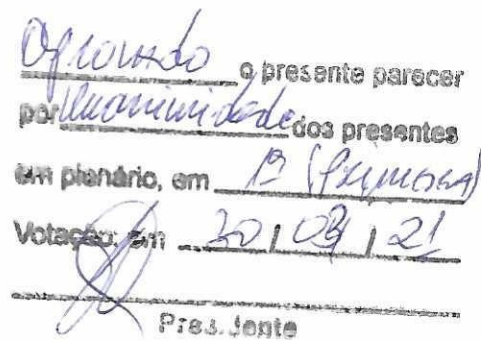 Aprovado o presente parecer
por Unanimidade dos presentes
em plenário, em 1ª (Primeira)
Votação, em 30 / 03 / 21
Presidente